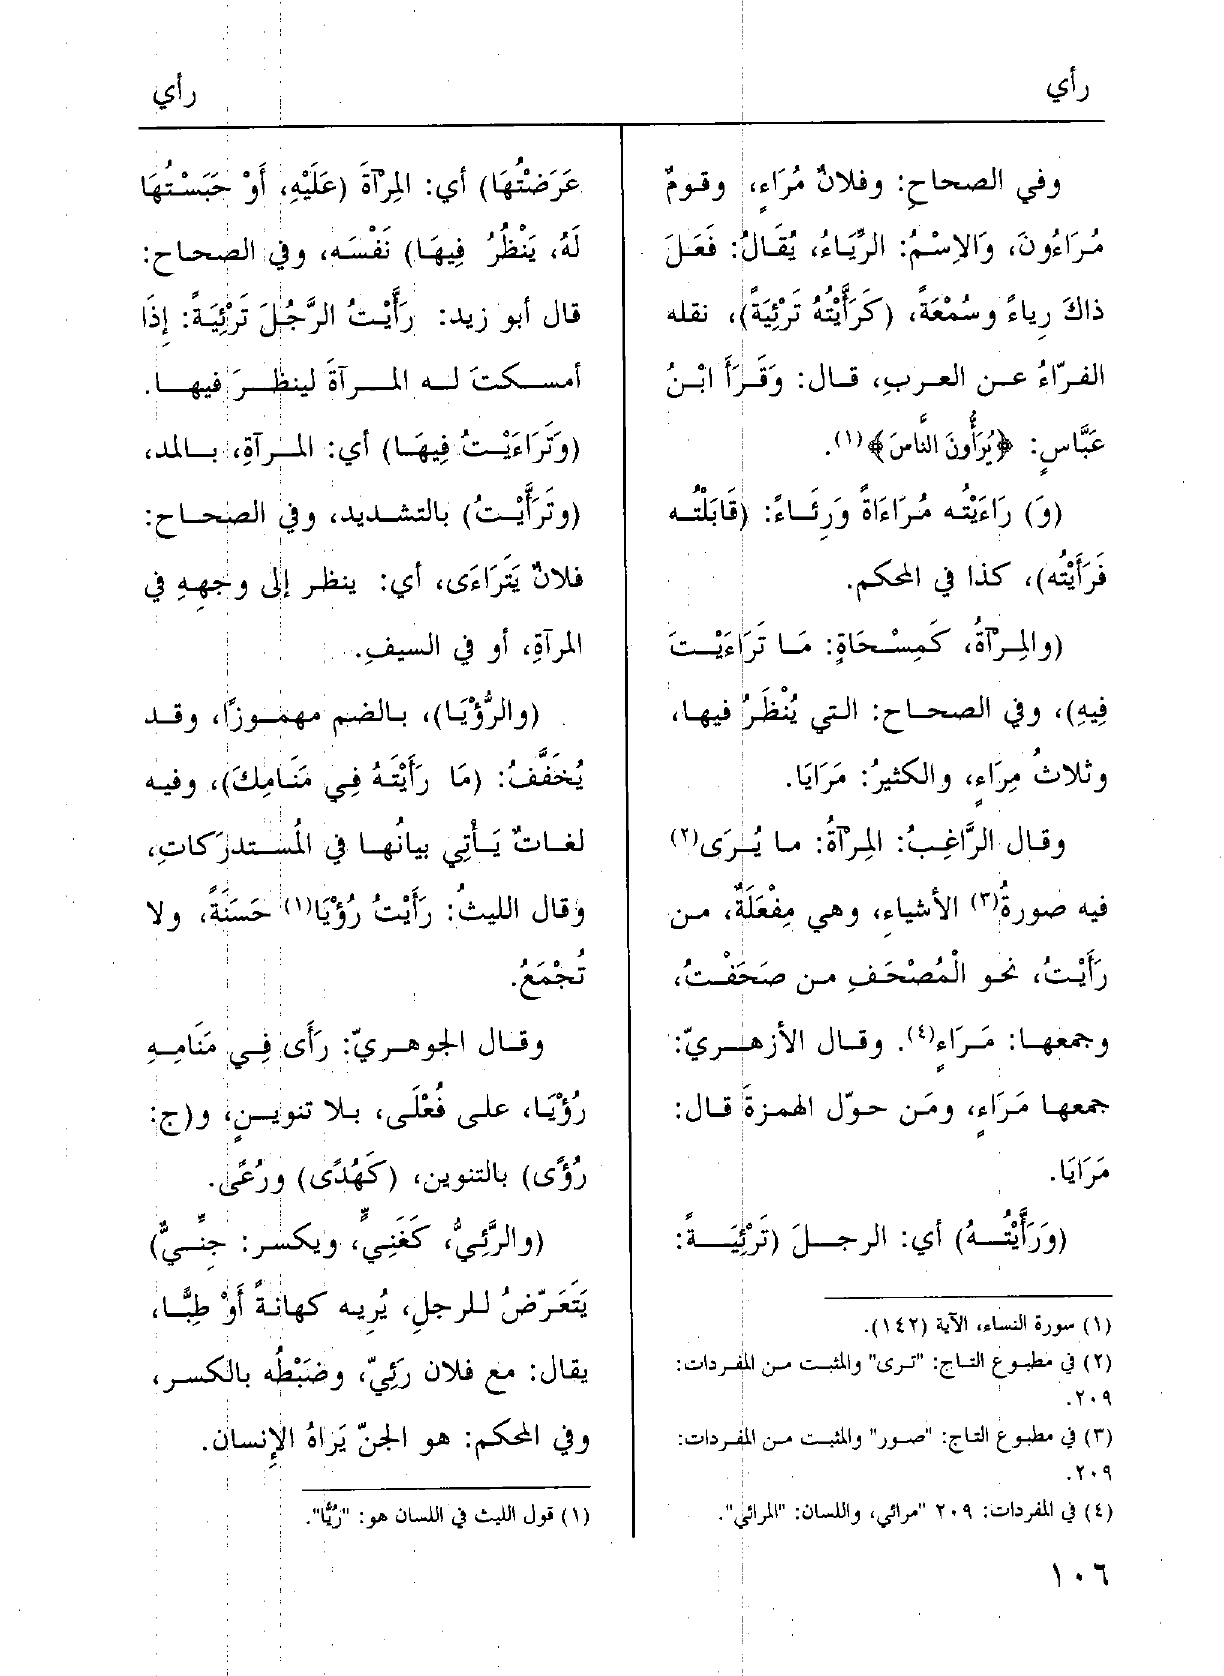 رأي
رأي
وفي الصحاحِ: وفلانٌ مُرَاءٍ، وقومٌ
مُرَاءُونَ، وَالاِسْمُ: الرِّيَاءُ، يُقَالُ: فَعَلَ
ذاكَ رِياءً وسُمْعَةً، (كَرَأَّيْتُهُ تَرْئِيَةً)، نقله
الفرّاءُ عن العربِ، قال: وَقَرَأَ ابْنُ
عَبَّاسٍ: ﴿يُرَأُّونَ النَّاسَ﴾(١).
(وَ) رَاءَيْتُه مُرَاءَاةً وَرِئَاءً: (قَابَلْتُه
فَرَأَيْتُه)، كذا في المحكم.
(والمِرْآةُ، كَمِسْحَاةٍ: مَا تَرَاءَيْتَ
فِيهِ)، وفي الصحاح: التي يُنْظَرُ فيها،
وثلاثُ مِرَاءٍ، والكثيرُ: مَرَايَا.
وقال الرَّاغِبُ: المِرْآةُ: ما يُرَى(٢)
فيه صورةُ(٣) الأشياءِ، وهي مِفْعَلَةٌ، من
رَأَيْتُ، نحو الْمُصْحَفِ من صَحَفْتُ،
وجمعها: مَرَاءٍ(٤). وقال الأزهريّ:
جمعها مَرَاءٍ، ومَن حوّل الهمزةَ قال:
مَرَايَا.
(وَرَأَّيْتُهُ) أي: الرجلَ (تَرْئِيَةً:
(١) سورة النساء، الآية (١٤٢).
(٢) في مطبوع التاج: "ترى" والمثبت من المفردات:
٢٠٩.
(٣) في مطبوع التاج: "صور" والمثبت من المفردات:
٢٠٩.
(٤) في المفردات: ٢٠٩ "مرائي، واللسان: "المرائي".
عَرَضْتُهَا) أي: المِرْآةَ (عَلَيْهِ، أَوْ حَبَسْتُهَا
لَهُ، يَنْظُرُ فِيهَا) نَفْسَه، وفي الصحاح:
قال أبو زيد: رَأَيْتُ الرَّجُلَ تَرْئِيَةً: إِذَا
أمسكتَ له المرآةَ لينظرَ فيها.
(وَتَرَاءَيْتُ فِيهَا) أي: المرآةِ، بالمد،
(وتَرَأَّيْتُ) بالتشديد، وفي الصحاح:
فلانٌ يَتَرَاءَى، أي: ينظر إلى وجهِهِ في
المرآةِ، أو في السيفِ.
(والرُّؤْيَا)، بالضم مهموزًا، وقد
يُخَفَّفُ: (مَا رَأَيْتَهُ فِي مَنَامِكَ)، وفيه
لغاتٌ يَأْتِي بيانُها في المُستدرَكاتِ،
وقال الليثُ: رَأَيْتُ رُؤْيَا(١) حَسَنَةً، ولا
تُجْمَعُ.
وقال الجوهريّ: رَأَى فِي مَنَامِهِ
رُؤْيَا، على فُعْلَى، بلا تنوينٍ، و(ج:
رُؤًى) بالتنوين، (كَهُدًى) ورُعًى.
(والرَّئِيُّ، كَغَنِيٍّ، ويكسر: جِنِّيٌّ)
يَتَعَرّضُ للرجلِ، يُرِيه كهانةً أَوْ طِبًّا،
يقال: مع فلان رَئِيّ، وضَبْطُه بالكسر،
وفي المحكم: هو الجنّ يَرَاهُ الإِنسان.
(١) قول الليث في اللسان هو: "رُيًّا".
١٠٦